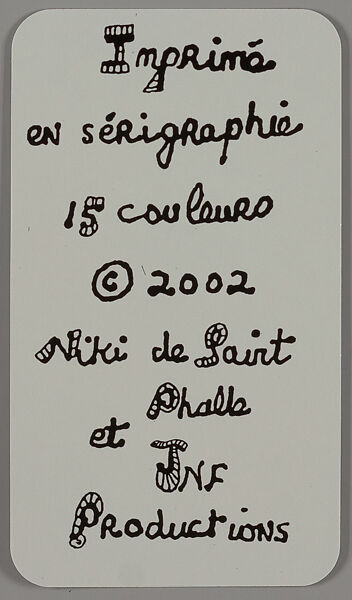 Imprimé
en sérigraphie
15 couleurs
© 2002
Niki de Saint
Phalle
et
JNF
Productions